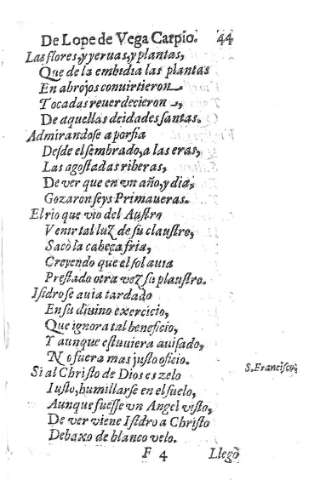 De Lope de Vega Carpio. 44
Las flores, y yeruas, y plantas,
Que de la embidia las plantas
En abrojos conuirtieron,
Tocadas reuerdecieron,
De aquellas deidades santas.
Admirandose a porfia
Desde el sembrado, a las eras,
Las agostadas riberas,
De ver que en vn año, y dia,
Gozaron seys Primaueras.
El rio que vio del Austro
Venir tal luz de su claustro,
Sacò la cabeça fria,
Creyendo que el sol auia
Prestado otra vez su plaustro.
Isidro se auia tardado
En su diuino exercicio,
Que ignora tal beneficio,
Y aunque estuuiera auisado,
No fuera mas justo oficio.
Si al Christo de Dios es zelo S. Francisco,
Iusto, humillarse en el suelo,
Aunque fuesse vn Angel visto,
De ver viene Isidro a Christo
Debaxo de blanco velo.
F 4 Llegò